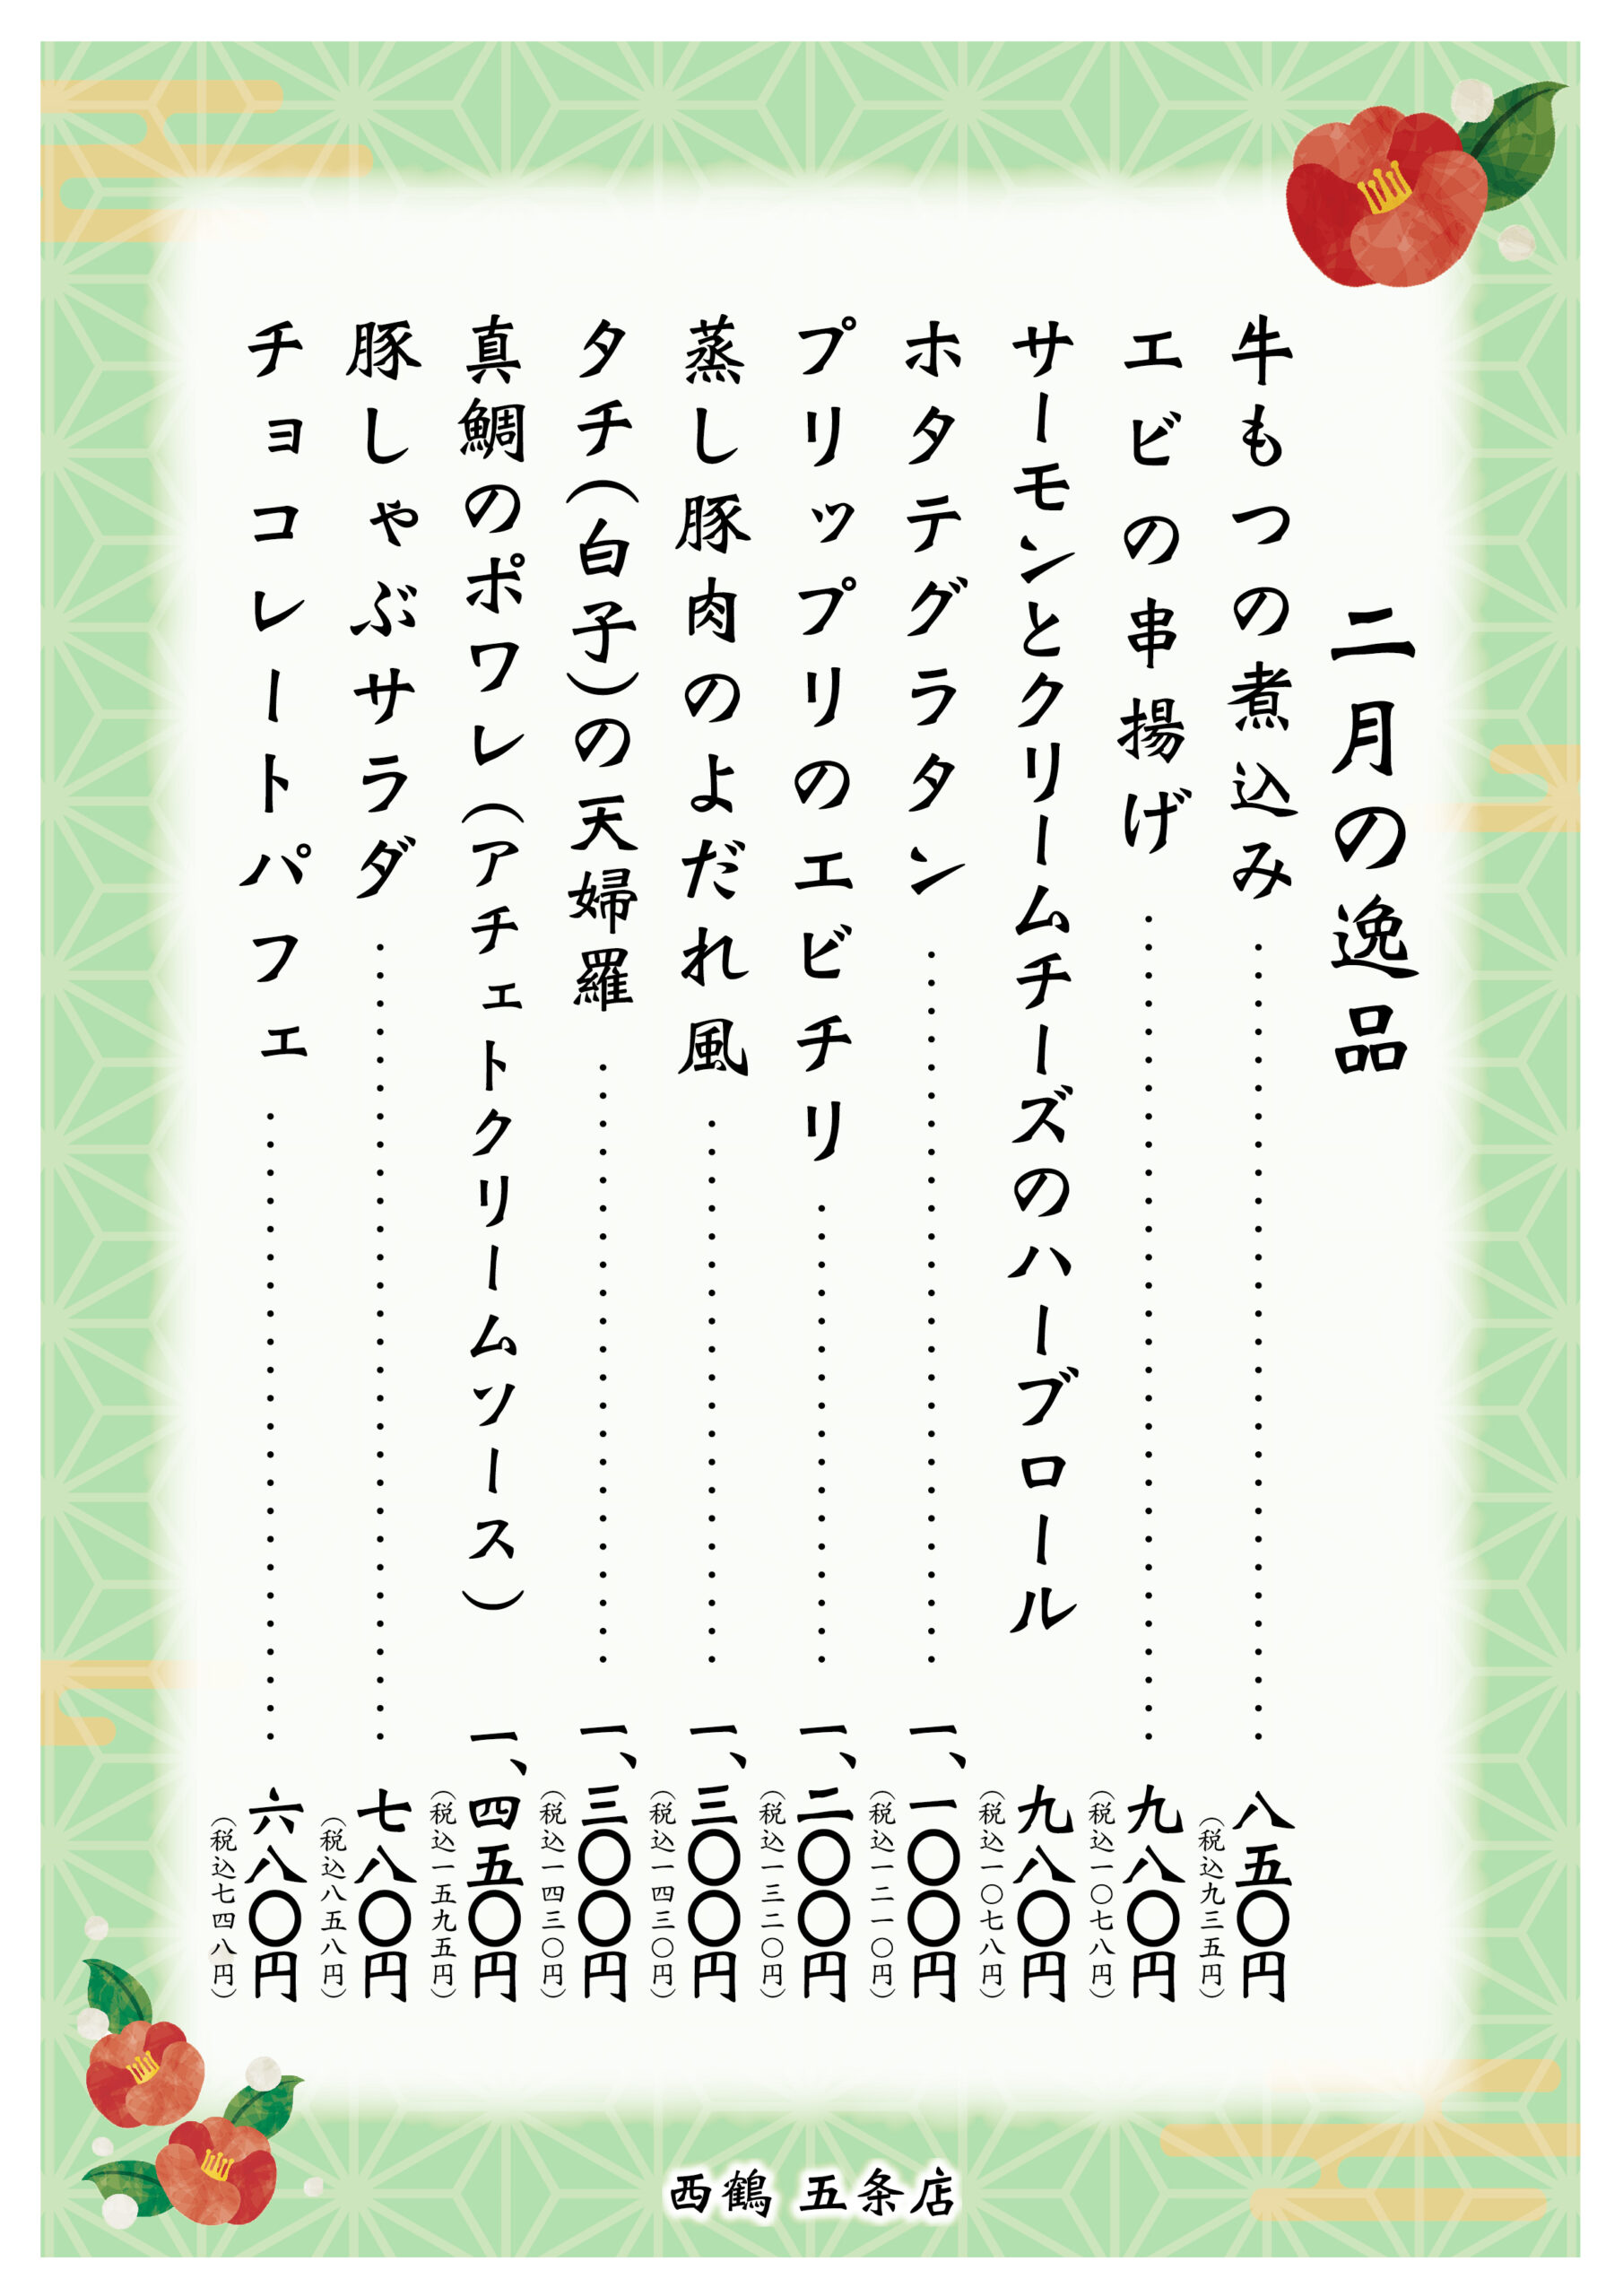 二月の逸品
牛もつの煮込み……………………八五〇円
（税込九三五円）
エビの串揚げ……………………九八〇円
（税込一〇七八円）
サーモンとクリームチーズのハーブロール 九八〇円
（税込一〇七八円）
ホタテグラタン……………………一、一〇〇円
（税込一二一〇円）
プリップリのエビチリ……………………一、二〇〇円
（税込一三二〇円）
蒸し豚肉のよだれ風……………………一、三〇〇円
（税込一四三〇円）
タチ（白子）の天婦羅……………………一、三〇〇円
（税込一四三〇円）
真鯛のポワレ（アチェトクリームソース） 一、四五〇円
（税込一五九五円）
豚しゃぶサラダ……………………七八〇円
（税込八五八円）
チョコレートパフェ……………………六八〇円
（税込七四八円）
西鶴 五条店